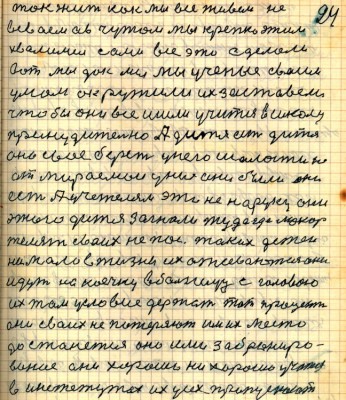 24
то жить как мы все живем не
в чужом мы крепко этим
хвалимся сами все это сделали
вот мы док мы ученые своим
умом окружили их заставеле
чтобы они все шли учится в школу
принудительно А дитя ест дитя
оно свое берет у него шалости не
от мираемои у них они были они
ест А учетелям это не наруку они
этого дитя загнали туда где макар
телят своих не пас. таких детей
на мало в жизни их
идут на коечку в больницу с головою
их там условие держат тот процент
они своих не потеряют им их место
достанется оно ими заброниро-
вание они хорошо ни хорошо учатся
в инстетутах их уих пропускают